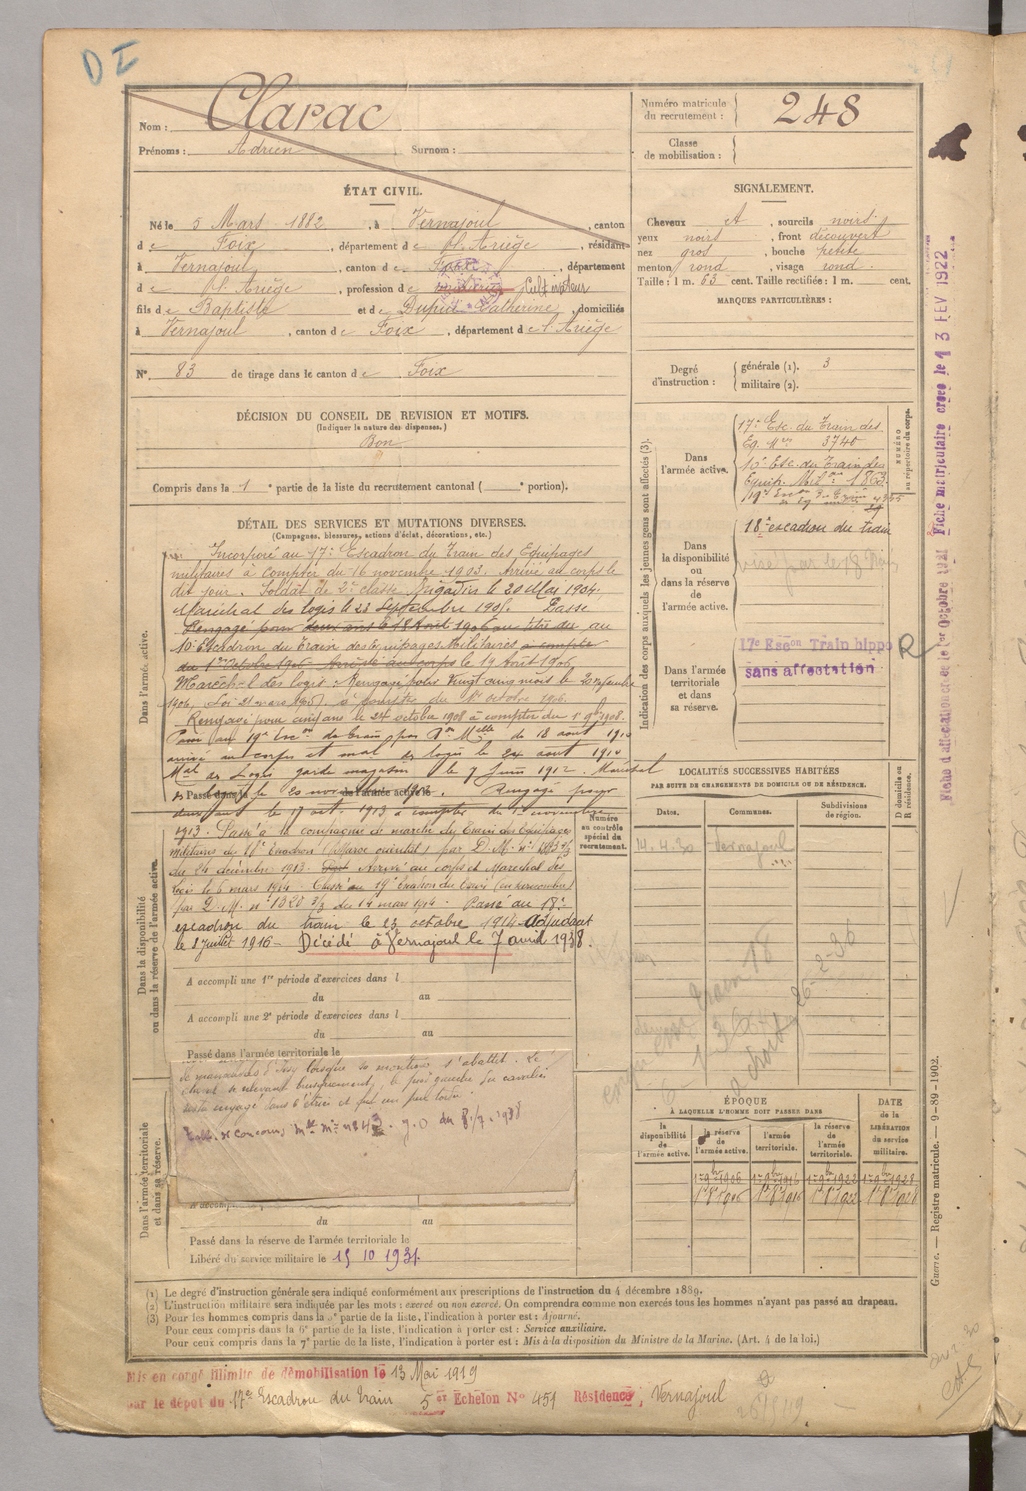 D I
Nom : Clarac
Prénoms : Adrien Surnom :
Numéro matricule du recrutement : 248
Classe de mobilisation :
ÉTAT CIVIL.
Né le 5 Mars 1882, à Vernajoul, canton
de Foix, département de l'Ariège, résidant
à Vernajoul, canton de Foix, département
de l'Ariège, profession de Cultivateur
fils de Baptiste et de Dupuis Catherine, domiciliés
à Vernajoul, canton de Foix, département de l'Ariège
N° 83 de tirage dans le canton de Foix
SIGNALEMENT.
Cheveux et, sourcils noirs,
yeux noirs, front découvert
nez gros, bouche petite
menton rond, visage rond.
Taille : 1 m. 63 cent. Taille rectifiée : 1 m. cent.
MARQUES PARTICULIÈRES :
Degré d'instruction : générale (1). 3
militaire (2).
DÉCISION DU CONSEIL DE REVISION ET MOTIFS.
(Indiquer la nature des dispenses.)
Bon
Compris dans la 1e partie de la liste du recrutement cantonal ( e portion).
DÉTAIL DES SERVICES ET MUTATIONS DIVERSES.
(Campagnes, blessures, actions d'éclat, décorations, etc.)
Dans l'armée active.
Incorporé au 17e Escadron du Train des Equipages
militaires à compter du 16 novembre 1903. Arrivé au corps le
dit jour. Soldat de 2e classe. Brigadier le 20 Mai 1904.
Maréchal des logis le 23 Septembre 1905. Passé
Rengagé pour deux ans le 18 Août 1906 au titre du au
10e Escadron du Train des Equipages Militaires à compter
du 1er Octobre 1906 Arrivé au corps le 19 Août 1906
Maréchal des logis. Rengagé pour vingt cinq mois le
1906, Loi 21 mars 1905) à compter du 1er octobre 1906.
Rengagé pour cinq ans le 24 octobre 1908 à compter du 1er 9bre 1908.
Passé au 19e de train par de 18 août 1910
arrivé au corps et mal des logis le 24 août 1910
Mal des Logis garde magasin le 7 Juin 1912. Maréchal
des logis le 20 novembre Rengagé pour
Passé dans la de l'armée active le
deux ans le 17 oct. 1913 à compter du 1er novembre
1913. Passé à la compagnie de marche du train des équipages
militaires du Escadron (Maroc oriental) par D. M. n°
du 24 décembre 1913. Arrivé au corps et Maréchal des
logis le 6 mars 1914. Classé au 19e Escadron du Train
par D. M. n° 1820 2/3 du 14 mars 1914. Passé au 18e
escadron du train le 23 octobre 1914 Adjudant
le 8 Juillet 1916 - Décédé à Vernajoul le 7 avril 1938.
Dans la disponibilité ou dans la réserve de l'armée active.
Numéro au contrôle spécial du recrutement.
A accompli une 1re période d'exercices dans l
du au
A accompli une 2e période d'exercices dans l
du au
Passé dans l'armée territoriale le
lorsque sa monture s'abattit. Le
cheval se relevant brusquement, le pied gauche du cavalier
resta engagé dans l'étrier et fut un peu tordu.
du 8/7/1938
Dans l'armée territoriale et dans sa réserve.
A accompli
du au
Passé dans la réserve de l'armée territoriale le
Libéré du service militaire le 15 10 1931.
Indication des corps auxquels les jeunes gens sont affectés (3).
NUMÉRO au répertoire du corps.
Dans l'armée active.
17e Esc. du Train des
Eq. Mres 3740
10e Esc. du Train des
Equip. Mil. 1863
Dans la disponibilité ou dans la réserve de l'armée active.
18e escadron du train
Dans l'armée territoriale et dans sa réserve.
17e Escon Train hippo R
sans affectation
LOCALITÉS SUCCESSIVES HABITÉES
PAR SUITE DE CHANGEMENTS DE DOMICILE OU DE RÉSIDENCE.
Dates. Communes. Subdivisions de région. D domicile ou R résidence.
14.4.30 Vernajoul
ÉPOQUE
À LAQUELLE L'HOMME DOIT PASSER DANS
la disponibilité de l'armée active. la réserve de l'armée active. l'armée territoriale. la réserve de l'armée territoriale. DATE de la LIBÉRATION du service militaire.
1er 9bre 1906 1er 9bre 1916 1er 9bre 1922 1er 9bre 1928
(1) Le degré d'instruction générale sera indiqué conformément aux prescriptions de l'instruction du 4 décembre 1889.
(2) L'instruction militaire sera indiquée par les mots : exercé ou non exercé. On comprendra comme non exercés tous les hommes n'ayant pas passé au drapeau.
(3) Pour les hommes compris dans la 5e partie de la liste, l'indication à porter est : Ajourné.
Pour ceux compris dans la 6e partie de la liste, l'indication à porter est : Service auxiliaire.
Pour ceux compris dans la 7e partie de la liste, l'indication à porter est : Mis à la disposition du Ministre de la Marine. (Art. 4 de la loi.)
Mis en congé illimité de démobilisation le 13 Mai 1919
par le dépôt du 17e Escadron du Train 5e Echelon N° 451 Résidence, Vernajoul
Fiche d'affectation créée le 1er Octobre 1921 Fiche matriculaire créée le 13 FEV 1922
Guerre. — Registre matricule. — 9-89-1902.